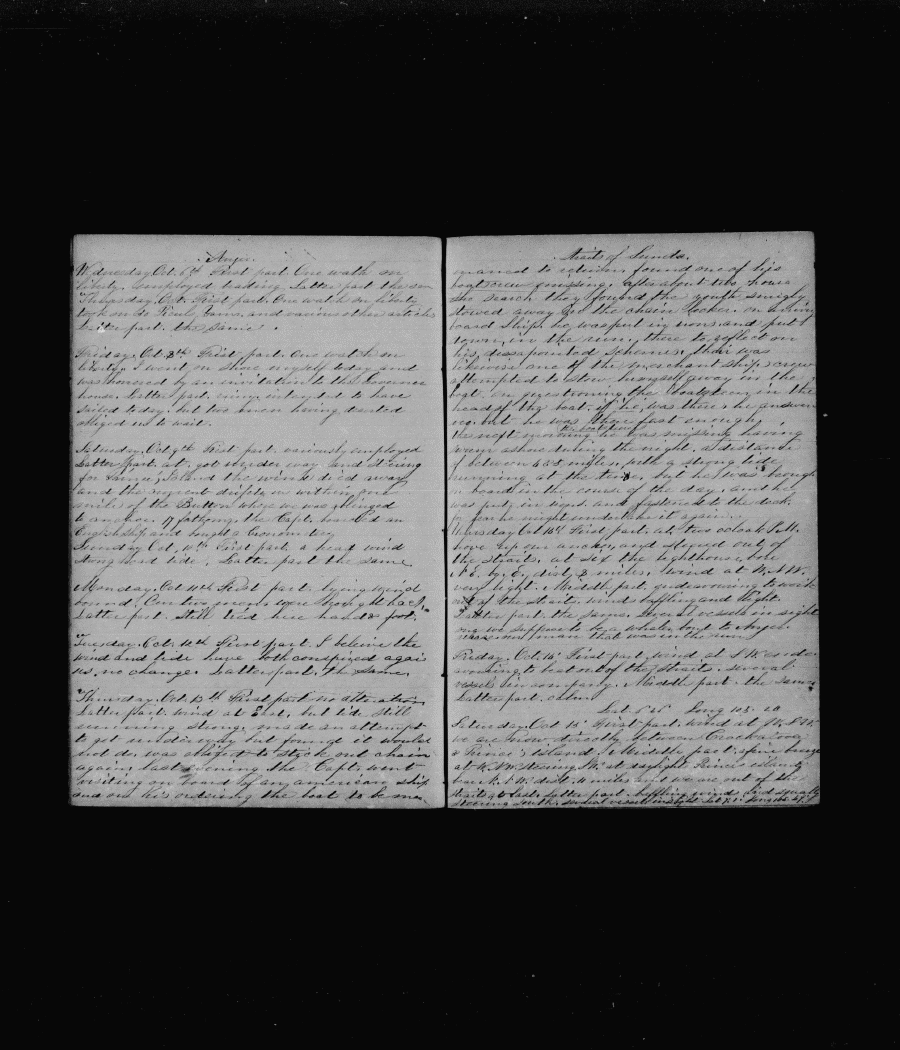 Anjer.
Wednesday Oct. 6th First part. One watch on
liberty. employed trading. Latter part the same
Thursday, Oct. First part. One watch on liberty
took on bo Fowl, Yams, and various other articles
Latter part. the Same.
Friday. Oct. 8th First part. One watch on
liberty. I went on shore myself today and
was honored by an invitation to the Governor
house. Latter part. intended to have
sailed today. but too much having darted
obliged us to wait.
Saturday, Oct 9th First part. variously employed
Latter part. at got under way and steering
for Island the wind died away
and the current drifted us within one
mile of the Button where we was obliged
to anchor. 17 fathoms. the Capt. boarded an
English ship and bought a
Sunday Oct. 10th First part. a head wind
strong head tide. Latter part the same.
Monday. Oct 11th First part. lying wind
bound. Our two men were brought back.
Latter part. Still tied here hand & foot.
Tuesday. Oct. 12th First part. I believe the
wind and tide have both conspired against
us, no change. Latter part. the Same.
Thursday. Oct. 13th First part no alteration
Latter part. wind at East, but tide still
running strong. made an attempt
to get underway but found it would
not do, was obliged to stick out chain
again. last evening the Capt. went
visiting on board of an american ship
and on his ordering the boat to be man
Straits of Sunda.
manned to return. found one of his
boat crew missing. after about two hours
search they found the youth snugly
stowed away in the chain locker. on
board ship he was put in irons and put
down in the run, there to reflect on
his disapointed schemes, their was
likewise one of the merchant ship's crew
attempted to stow himself away in the
boat. on questioning the boatsteerer in the
head of the boat. if he was there, he answered
no, but he was there fast enough.
the next morning the boatsteerer he was missing having
swum ashore during the night, a distance
of between 4 & 5 miles, with a strong tide
running at the time, but he was brought
on board in the course of the day. and he
was put in irons and fastened to the deck
for fear he might undertake it again.
Thursday Oct 14th First part, at two oclock P.M.
hove up our anchor, and stood out of
the straits, at six the lighthouse bore
N E by E. dist 8 miles, wind at W.N.W.
very light. Middle part endeavoring to work
out of the straits. wind baffling and light.
Latter part. the same. Several vessels in sight
one we suppose to be a whaler bound to Anjer.
man that was in the run
Friday. Oct. 15' First part, wind at S W
working to beat out of the Straits. several
vessels in company. Middle part. the same
Latter part. calm.
Lat 6 16 Long 105. 20
Saturday Oct 16' First part, wind at W.S.W.
we are now directly between Crockatoa
& Princes Island. Middle part; fine breeze
at W.N.W. steering W. at daylight Princes island
bore N.N.W. dist. miles and we are out of the
straits at last. Latter part. baffling winds and squally
steering South. several vessels in sight Lat 7. Long